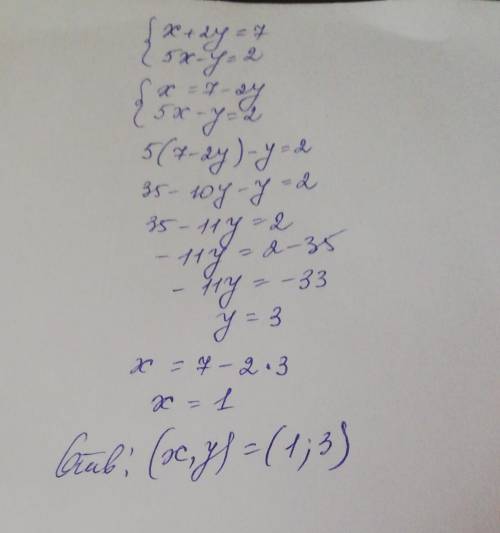 { x + 2y = 7
5x - y = 2
{ x = 7 - 2y
5x - y = 2
5(7-2y) - y = 2
35 - 10y - y = 2
35 - 11y = 2
- 11y = 2 - 35
- 11y = -33
y = 3
x = 7 - 2 · 3
x = 1
Отв: (x, y) = (1; 3)